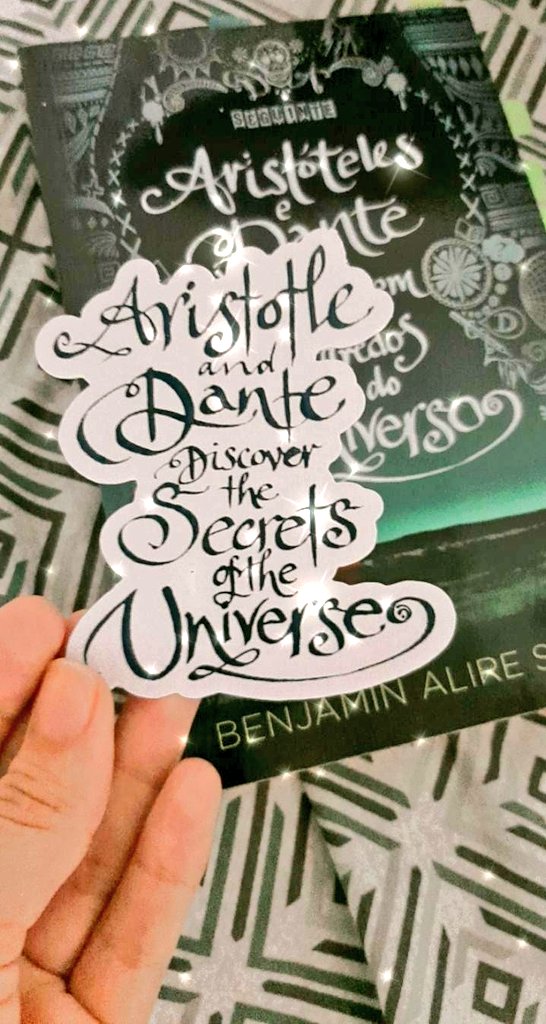 SEGUINTE
Aristóteles
e
Dante
Aristotle
and
Dante
Discover
the
Secrets
of the
Universe
do
BENJAMIN ALIRE